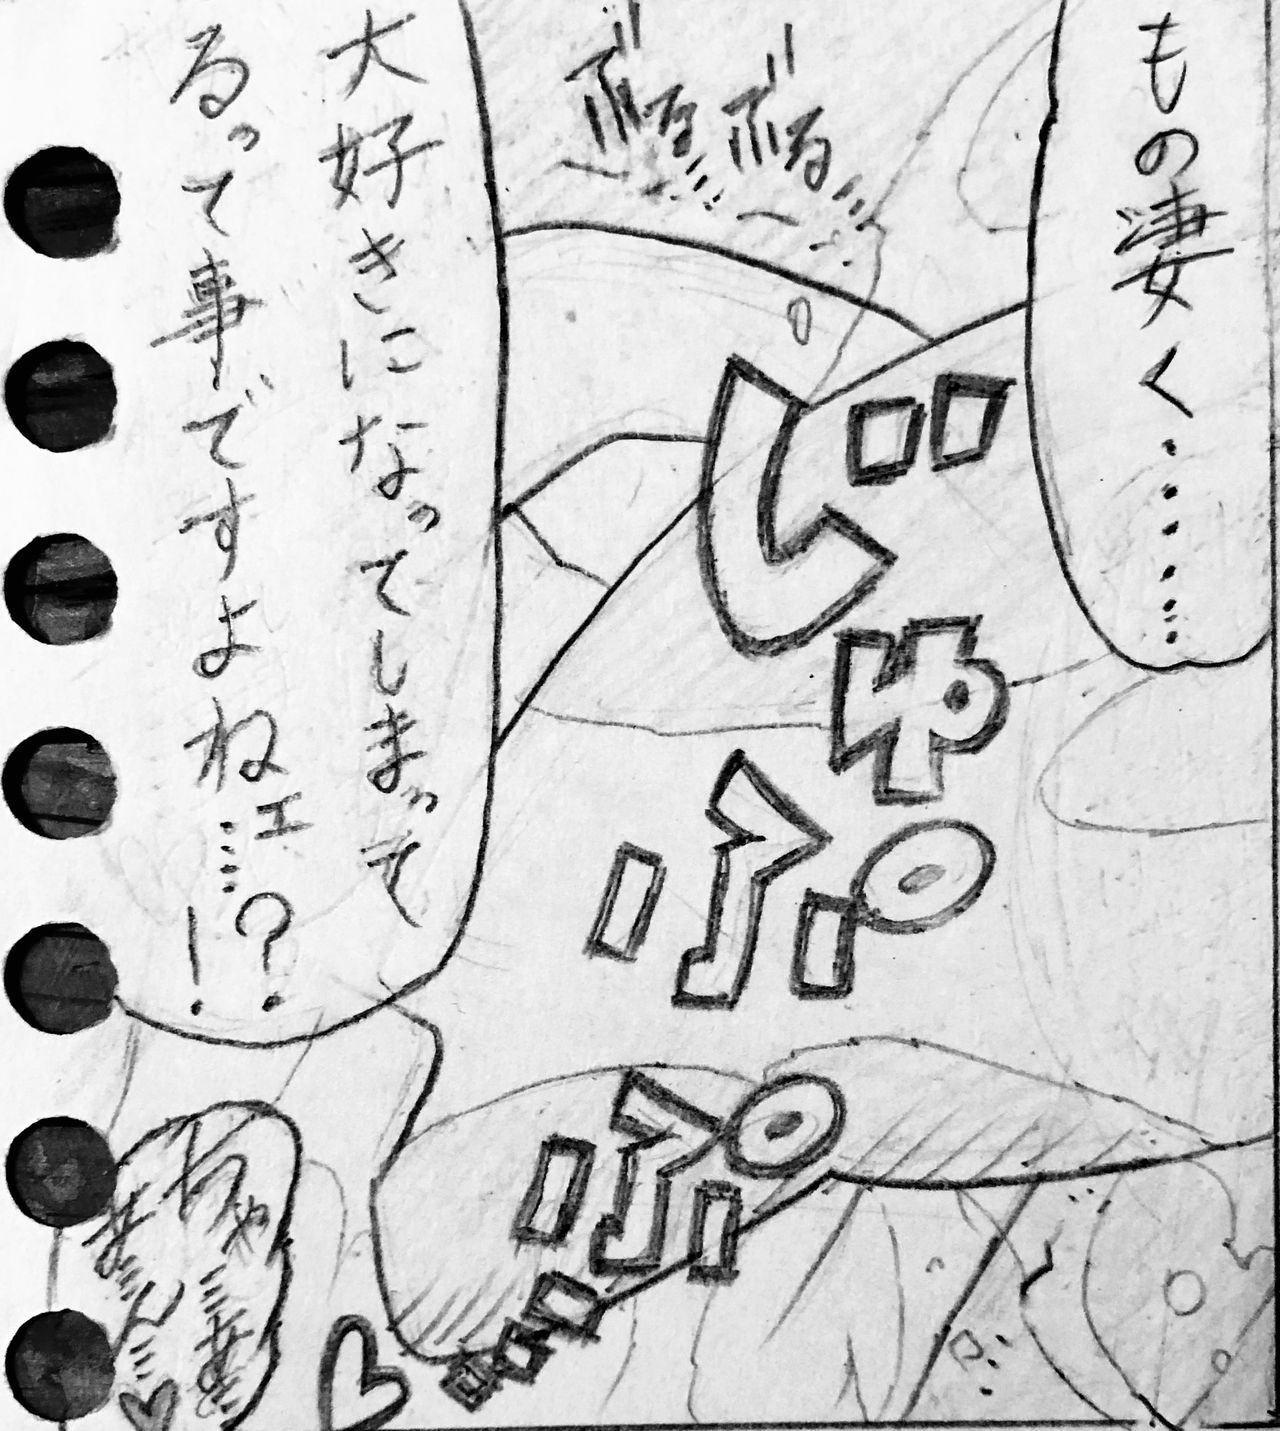 もの凄く………
ぶるぶる
じゅぷぷ
大好きになってしまって
るって事ですよねェ…!?